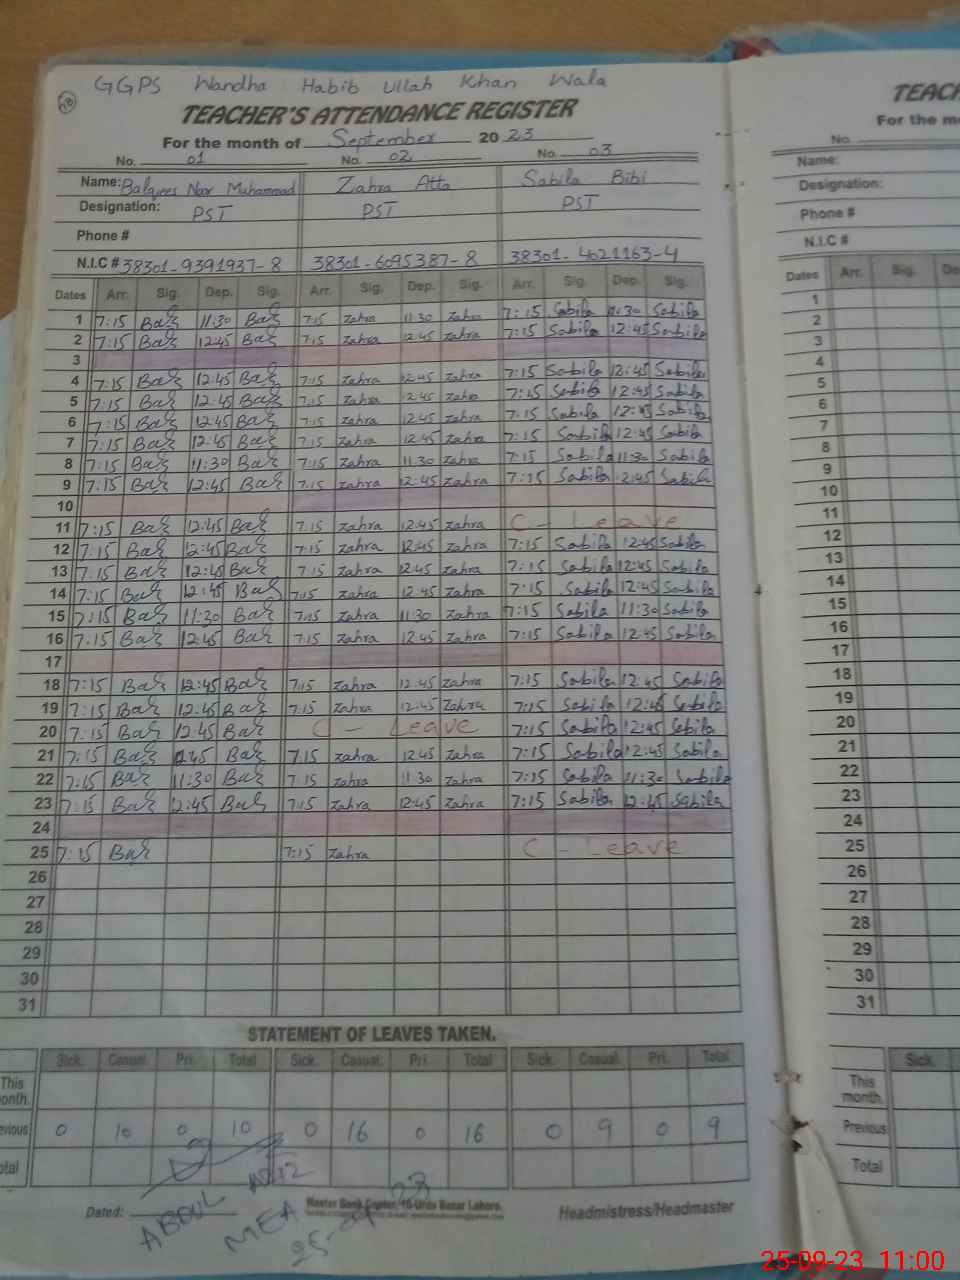 18
GGPS Wandha Habib Ullah Khan Wala
TEACHER'S ATTENDANCE REGISTER
For the month of September 2023
No. 01 No. 02 No. 03
Name: Balqees Noor Muhammad Zahra Atta Sabila Bibi
Designation: PST PST PST
Phone #
N.I.C # 38301-9391937-8 38301-6095387-8 38301-4021163-4
Dates Arr. Sig. Dep. Sig. Arr. Sig. Dep. Sig. Arr. Sig. Dep. Sig.
1 7:15 11:30 7:15 Zahra 11:30 Zahra 7:15 Sabila 11:30 Sabila
2 7:15 12:45 7:15 Zahra 12:45 Zahra 7:15 Sabila 12:45 Sabila
3
4 7:15 12:45 7:15 Zahra 12:45 Zahra 7:15 Sabila 12:45 Sabila
5 7:15 12:45 7:15 Zahra 12:45 Zahra 7:15 Sabila 12:45 Sabila
6 7:15 12:45 7:15 Zahra 12:45 Zahra 7:15 Sabila 12:45 Sabila
7 7:15 12:45 7:15 Zahra 12:45 Zahra 7:15 Sabila 12:45 Sabila
8 7:15 11:30 7:15 Zahra 11:30 Zahra 7:15 Sabila 11:30 Sabila
9 7:15 12:45 7:15 Zahra 12:45 Zahra 7:15 Sabila 12:45 Sabila
10
11 7:15 12:45 7:15 Zahra 12:45 Zahra C - Leave
12 7:15 12:45 7:15 Zahra 12:45 Zahra 7:15 Sabila 12:45 Sabila
13 7:15 12:45 7:15 Zahra 12:45 Zahra 7:15 Sabila 12:45 Sabila
14 7:15 12:45 7:15 Zahra 12:45 Zahra 7:15 Sabila 12:45 Sabila
15 7:15 11:30 7:15 Zahra 11:30 Zahra 7:15 Sabila 11:30 Sabila
16 7:15 12:45 7:15 Zahra 12:45 Zahra 7:15 Sabila 12:45 Sabila
17
18 7:15 12:45 7:15 Zahra 12:45 Zahra 7:15 Sabila 12:45 Sabila
19 7:15 12:45 7:15 Zahra 12:45 Zahra 7:15 Sabila 12:45 Sabila
20 7:15 12:45 C - Leave 7:15 Sabila 12:45 Sabila
21 7:15 12:45 7:15 Zahra 12:45 Zahra 7:15 Sabila 12:45 Sabila
22 7:15 11:30 7:15 Zahra 11:30 Zahra 7:15 Sabila 11:30 Sabila
23 7:15 12:45 7:15 Zahra 12:45 Zahra 7:15 Sabila 12:45 Sabila
24
25 7:15 7:15 Zahra C - Leave
26
27
28
29
30
31
STATEMENT OF LEAVES TAKEN.
Sick. Casual. Pri. Total Sick. Casual. Pri. Total Sick. Casual. Pri. Total
This
onth.
evious 0 10 0 10 0 16 0 16 0 9 0 9
otal
ABDUL AZIZ
MEA
25-09-23
Dated:
Master Book Center, 16-Urdu Bazar Lahore.
Headmistress/Headmaster
TEACH
For the m
No.
Name:
Designation:
Phone #
N.I.C #
Dates Arr. Sig. De
1
2
3
4
5
6
7
8
9
10
11
12
13
14
15
16
17
18
19
20
21
22
23
24
25
26
27
28
29
30
31
Sick.
This
month.
Previous
Total
25-09-23 11:00